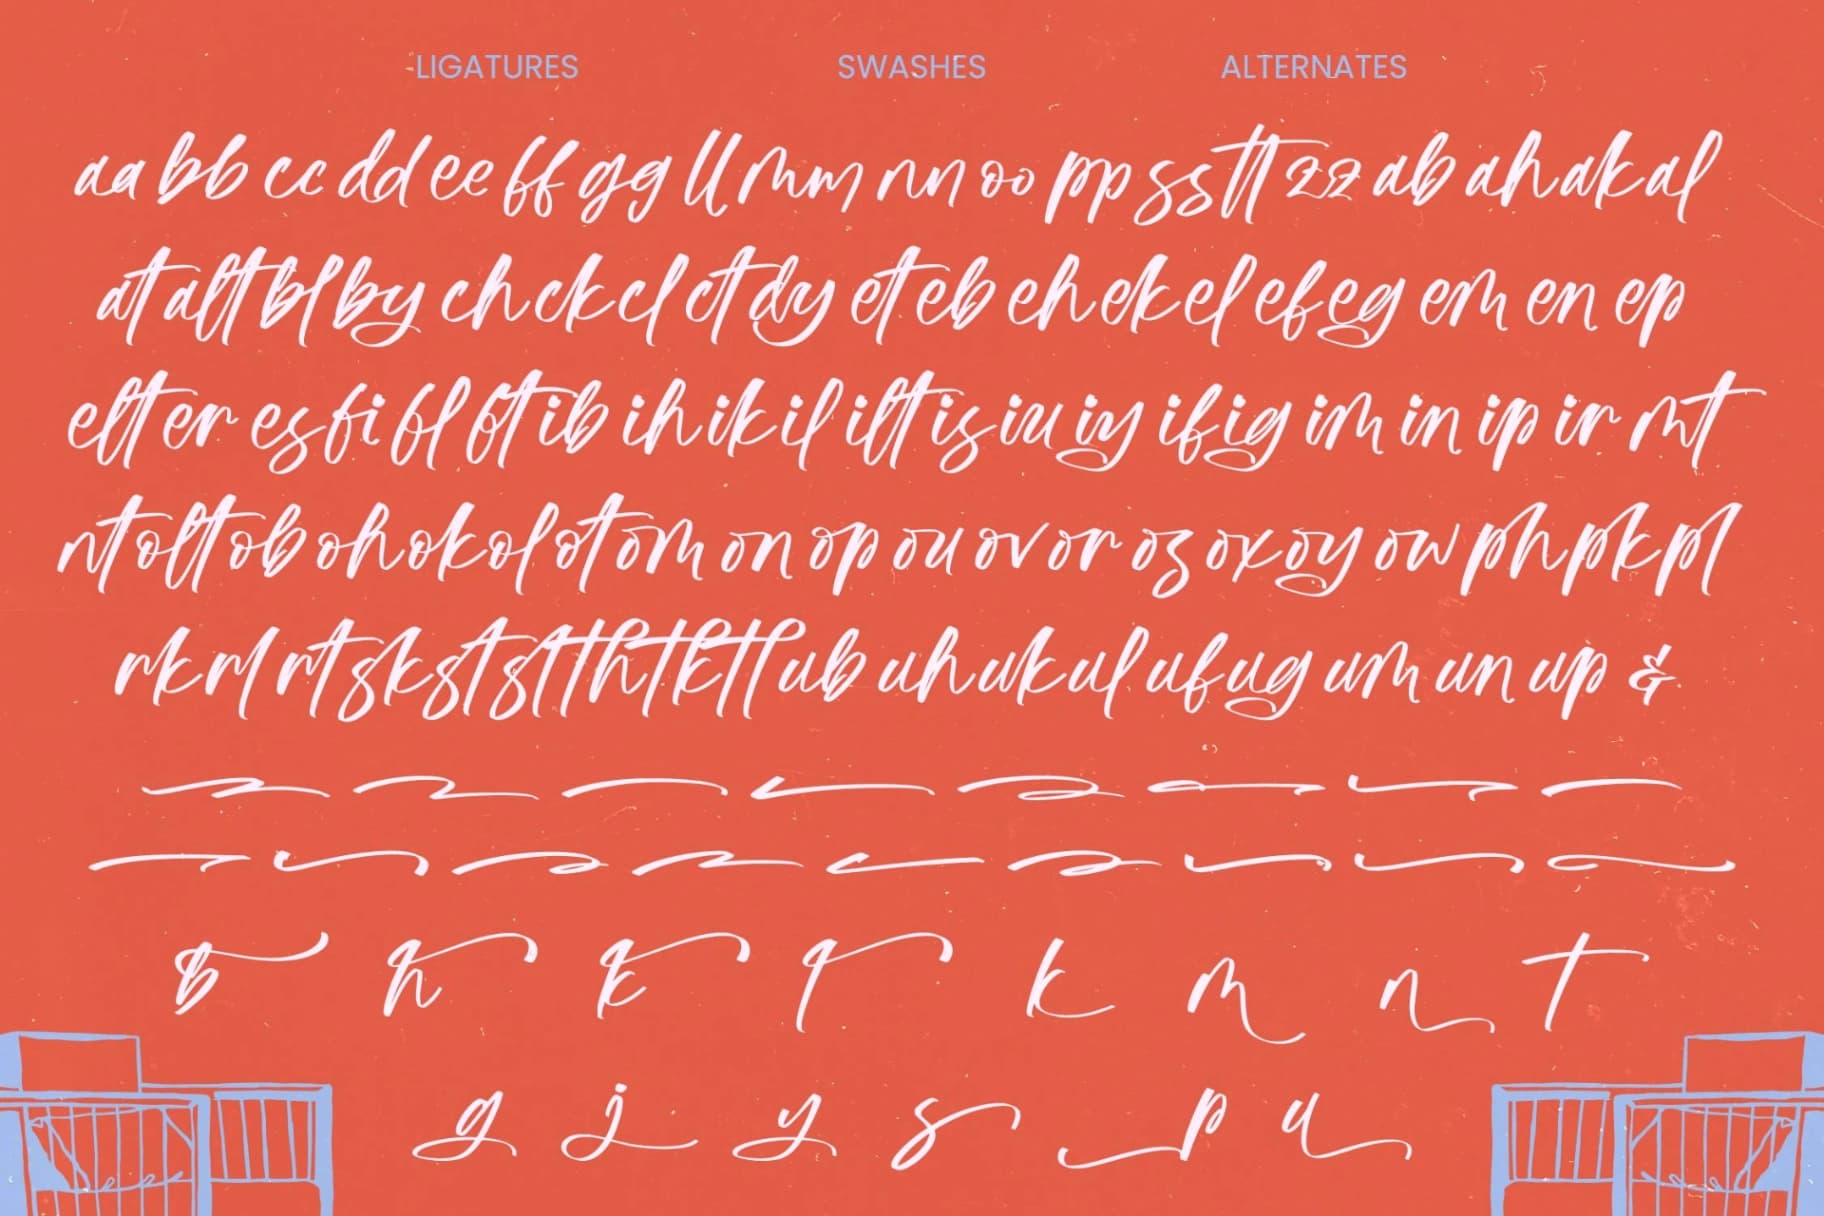 LIGATURES SWASHES ALTERNATES
aa bb cc dd ee ff gg ll mm nn oo pp ss tt zz ab ah ak al
at alt bl by ch ck cl ct dy et eb eh ek el ef eg em en ep
elt er es fi fl ft ib ih ik il ilt is iu iy if ig im in ip ir mt
nt olt ob oh ok ol ot om on op ou ov or oz ox oy ow ph pk pl
rk rl rt sk st st th tk tl ub uh uk ul uf ug um un up &
b h k l k m n t
g j y s p u